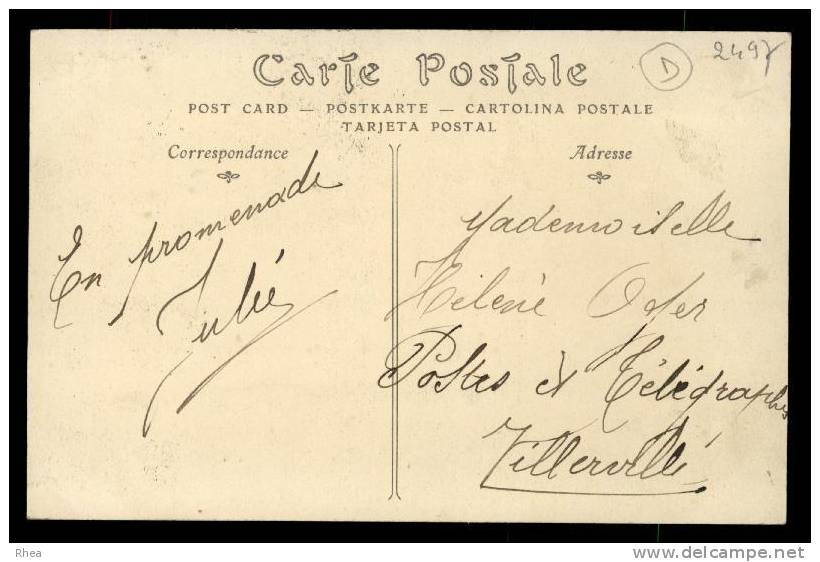 2497
D
Carte Postale
POST CARD — POSTKARTE — CARTOLINA POSTALE
TARJETA POSTAL
Correspondance
En promenade
Julie
Adresse
Mademoiselle
Hélène
Postes et Télégraphes
Villerville
Rhea
www.delcampe.net